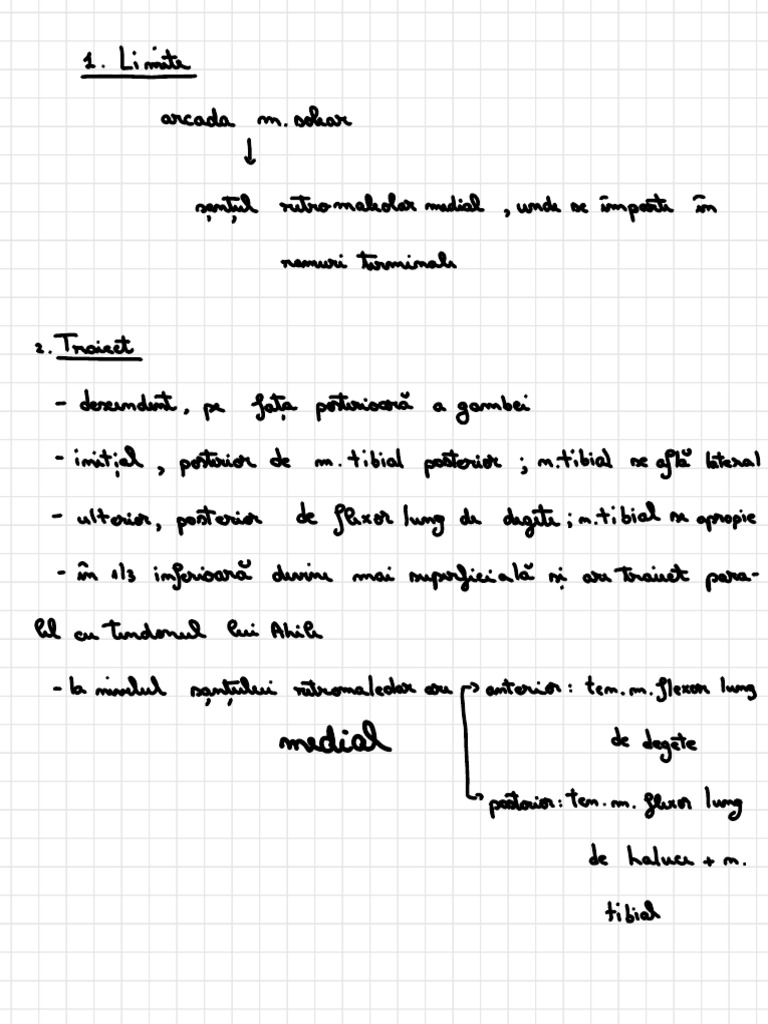 1. Limite
arcada m. solear
↓
șanțul retromaleolar medial, unde se împarte în
ramuri terminale
2. Traiect
- descendent, pe fața posterioară a gambei
- inițial, posterior de m. tibial posterior; n. tibial se află lateral
- ulterior, posterior de flexor lung de degete; n. tibial se apropie
- în 1/3 inferioară devine mai superficială și are traiect para-
lel cu tendonul lui Ahile
- la nivelul șanțului retromaleolar are → anterior: ten. m. flexor lung
medial
de degete
→ posterior: ten. m. flexor lung
de haluce + n.
tibial